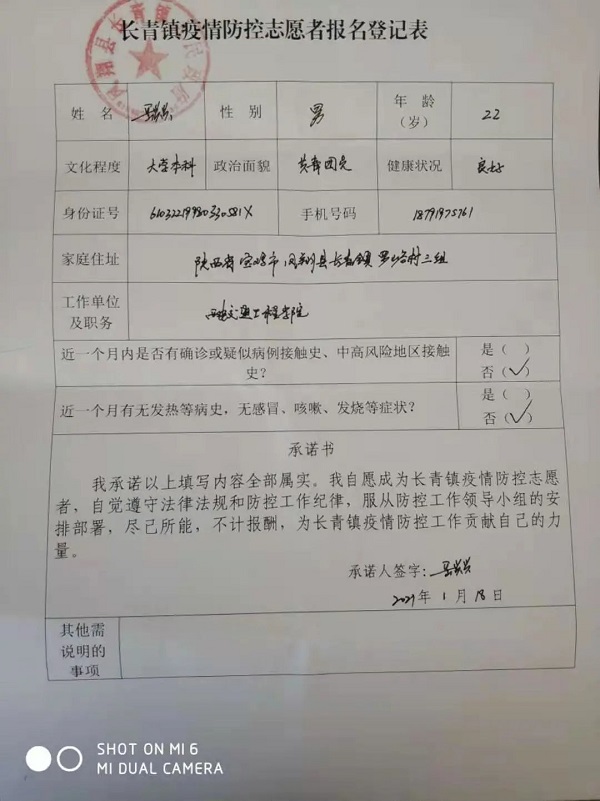 长青镇疫情防控志愿者报名登记表
姓 名 性 别 男 年 龄（岁） 22
文化程度 大学本科 政治面貌 共青团员 健康状况 良好
身份证号 手机号码 18791975761
家庭住址 陕西省宝鸡市凤翔县长青镇 村三组
工作单位及职务 交通工程学院
近一个月内是否有确诊或疑似病例接触史、中高风险地区接触史？ 是（ ） 否（✓）
近一个月有无发热等病史，无感冒、咳嗽、发烧等症状？ 是（ ） 否（✓）
承诺书
我承诺以上填写内容全部属实。我自愿成为长青镇疫情防控志愿
者，自觉遵守法律法规和防控工作纪律，服从防控工作领导小组的安
排部署，尽己所能，不计报酬，为长青镇疫情防控工作贡献自己的力
量。
承诺人签字：
2021年 1 月 18 日
其他需
说明的
事项
SHOT ON MI 6
MI DUAL CAMERA